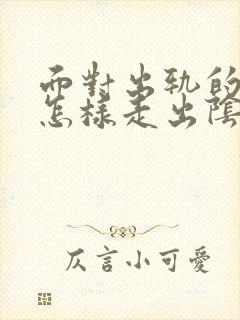 面對出軌的
怎樣走出陰
仄言小可愛